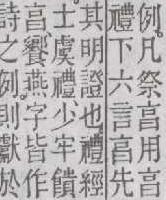 例。凡祭亯用亯
禮下六言亯先
其明證也。禮經
士虞禮、少牢饋
亯、饗燕字皆作
詩之例。則獻於